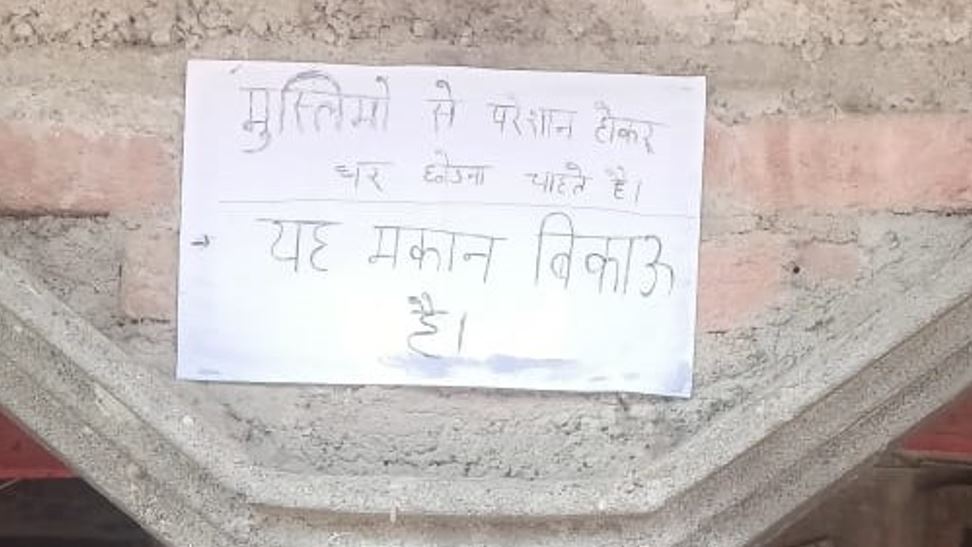 मुस्लिमो से परेशान होकर
घर छोडना चाहते है।
→ यह मकान बिकाऊ
है।